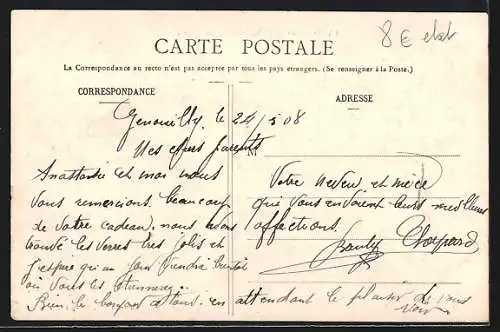 8 € etat
CARTE POSTALE
La Correspondance au recto n'est pas acceptée par tous les pays étrangers. (Se renseigner à la Poste.)
CORRESPONDANCE
ADRESSE
Genouilly, le 24/5 08
Mes chers parents
M
Anastasie et moi nous
vous remercions beaucoup
de votre cadeau. nous avons
trouvé les verres très jolis et
j'espère qu'un jour viendra bientôt
où vous les étrennerez.
Bien le bonjour à tous. en attendant le plaisir de vous
voir
Votre neveu et nièce
que vous envoient leurs meilleures
affections.
Chopard